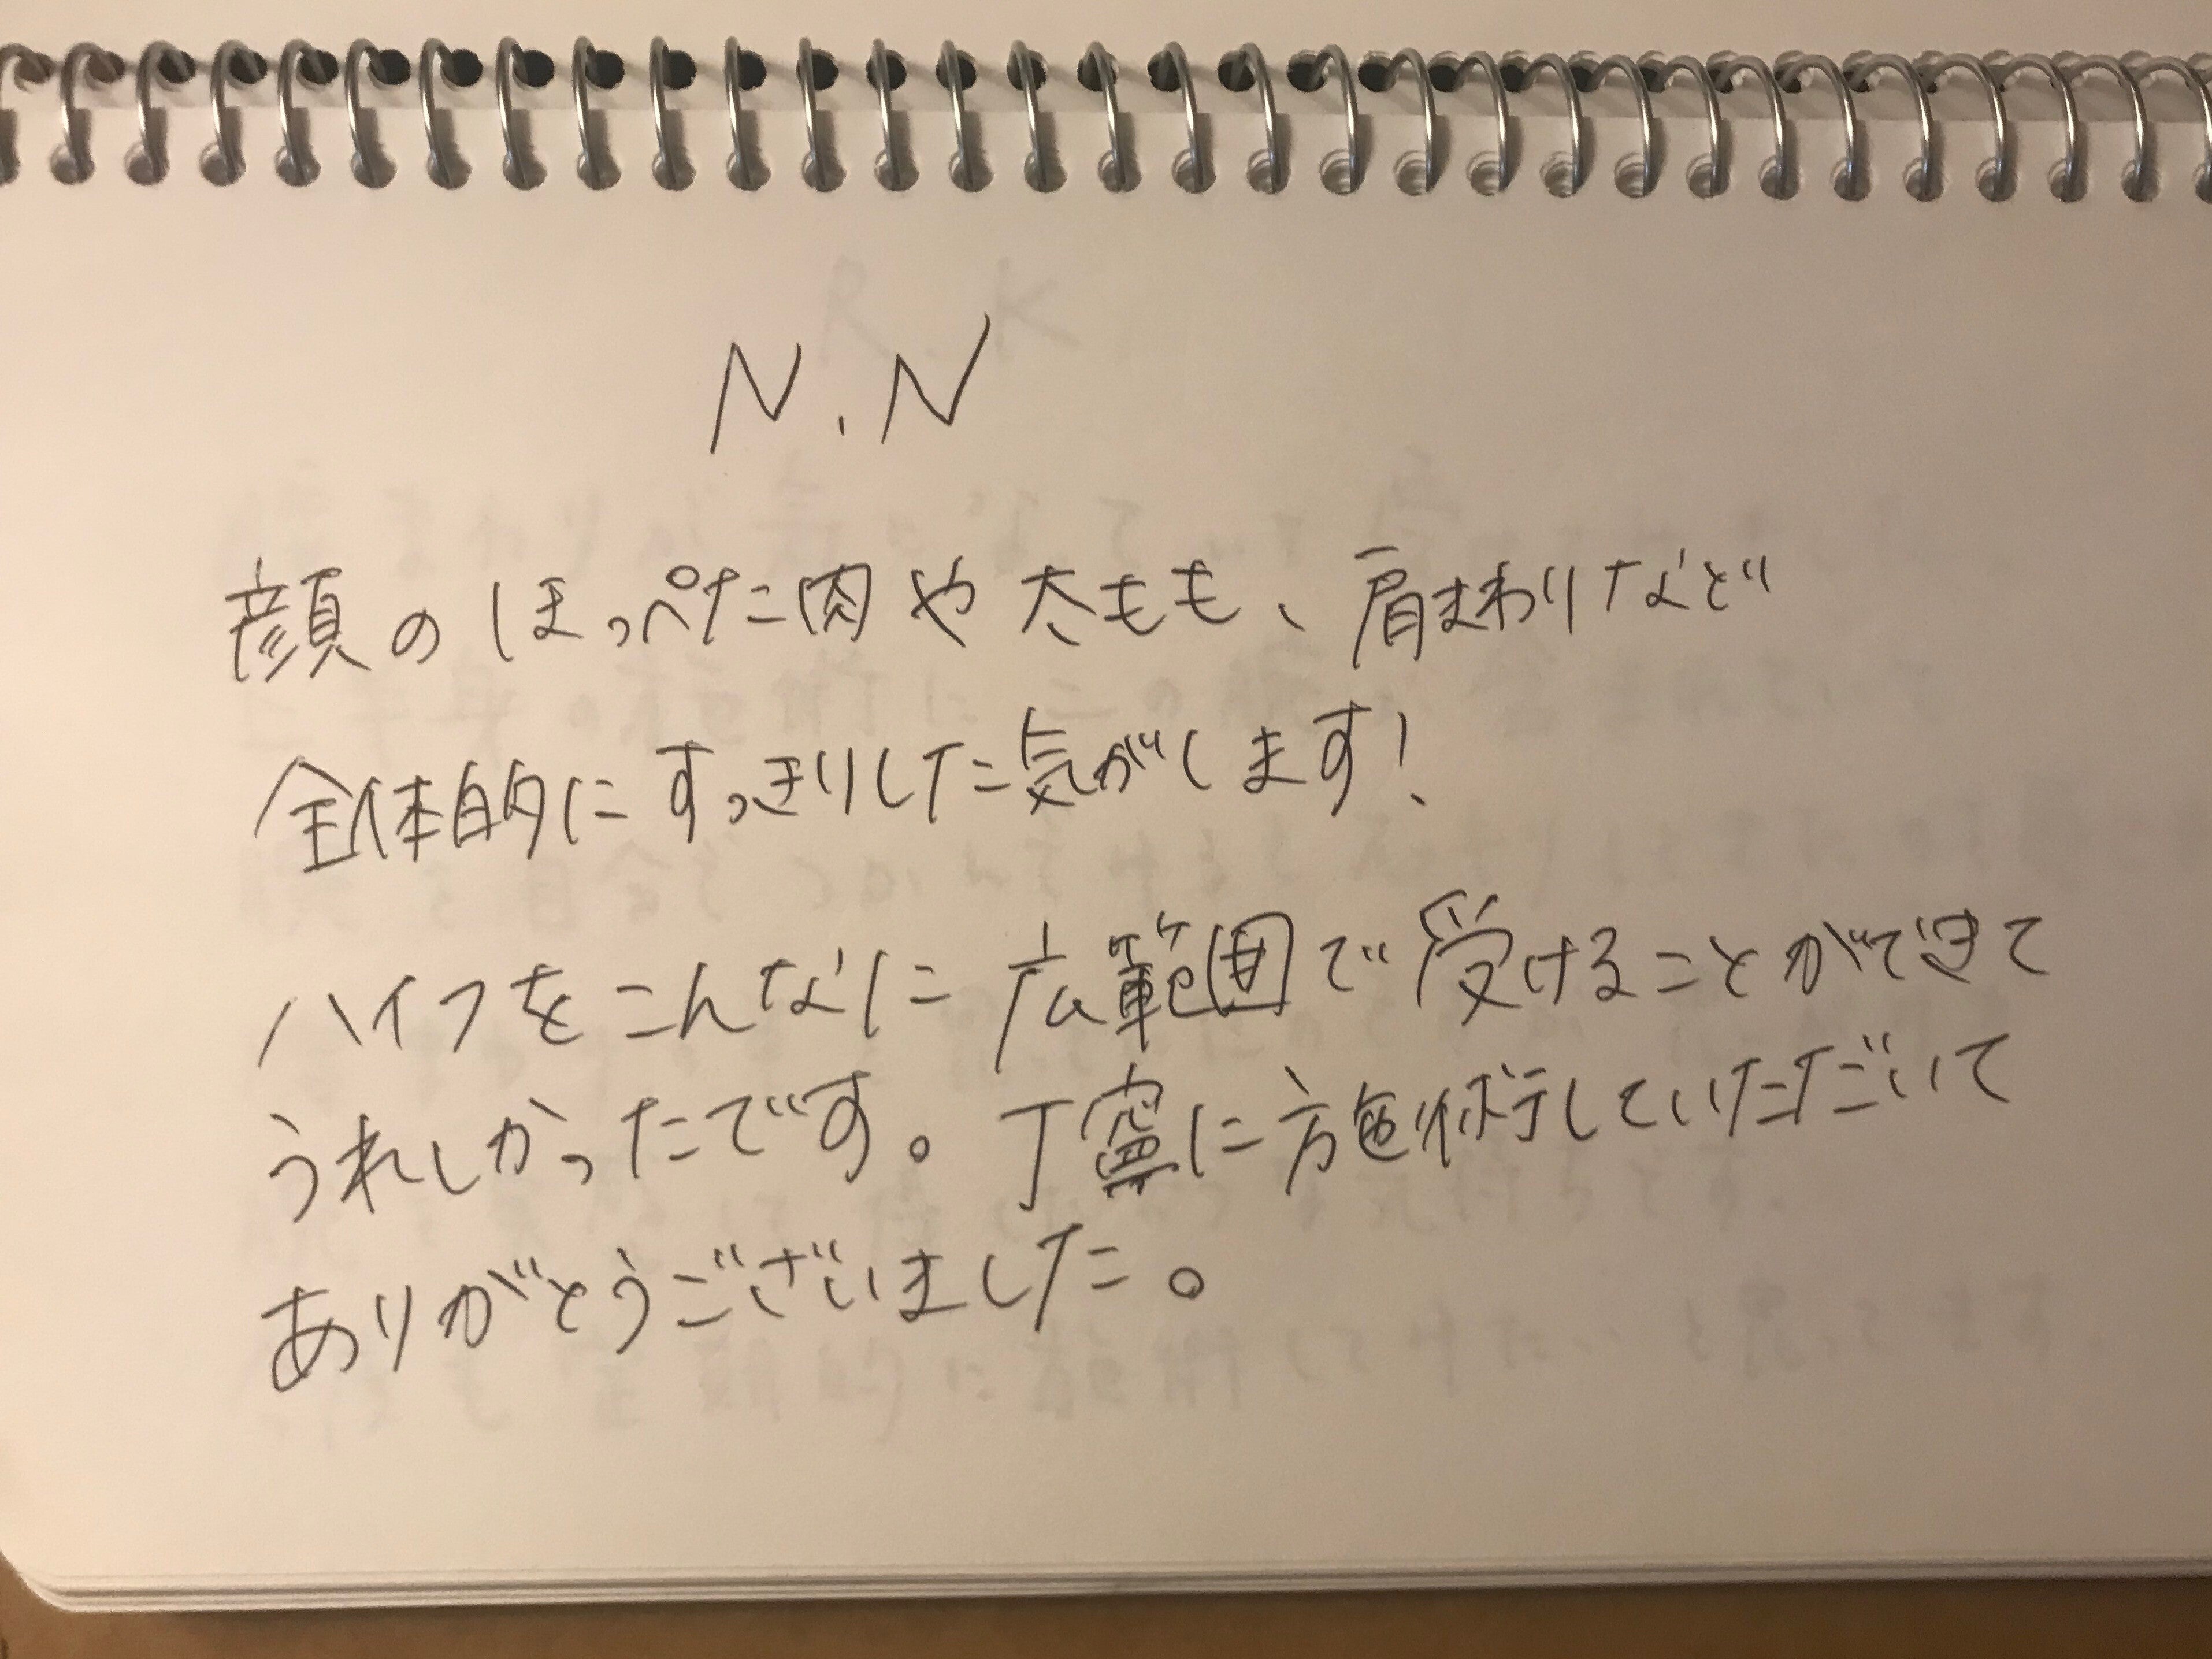 N.N
顔のほっぺた肉や太もも、肩まわりなど
全体的にすっきりした気がします!
ハイフをこんなに広範囲で受けることができて
うれしかったです。丁寧に施術していただいて
ありがとうございました。